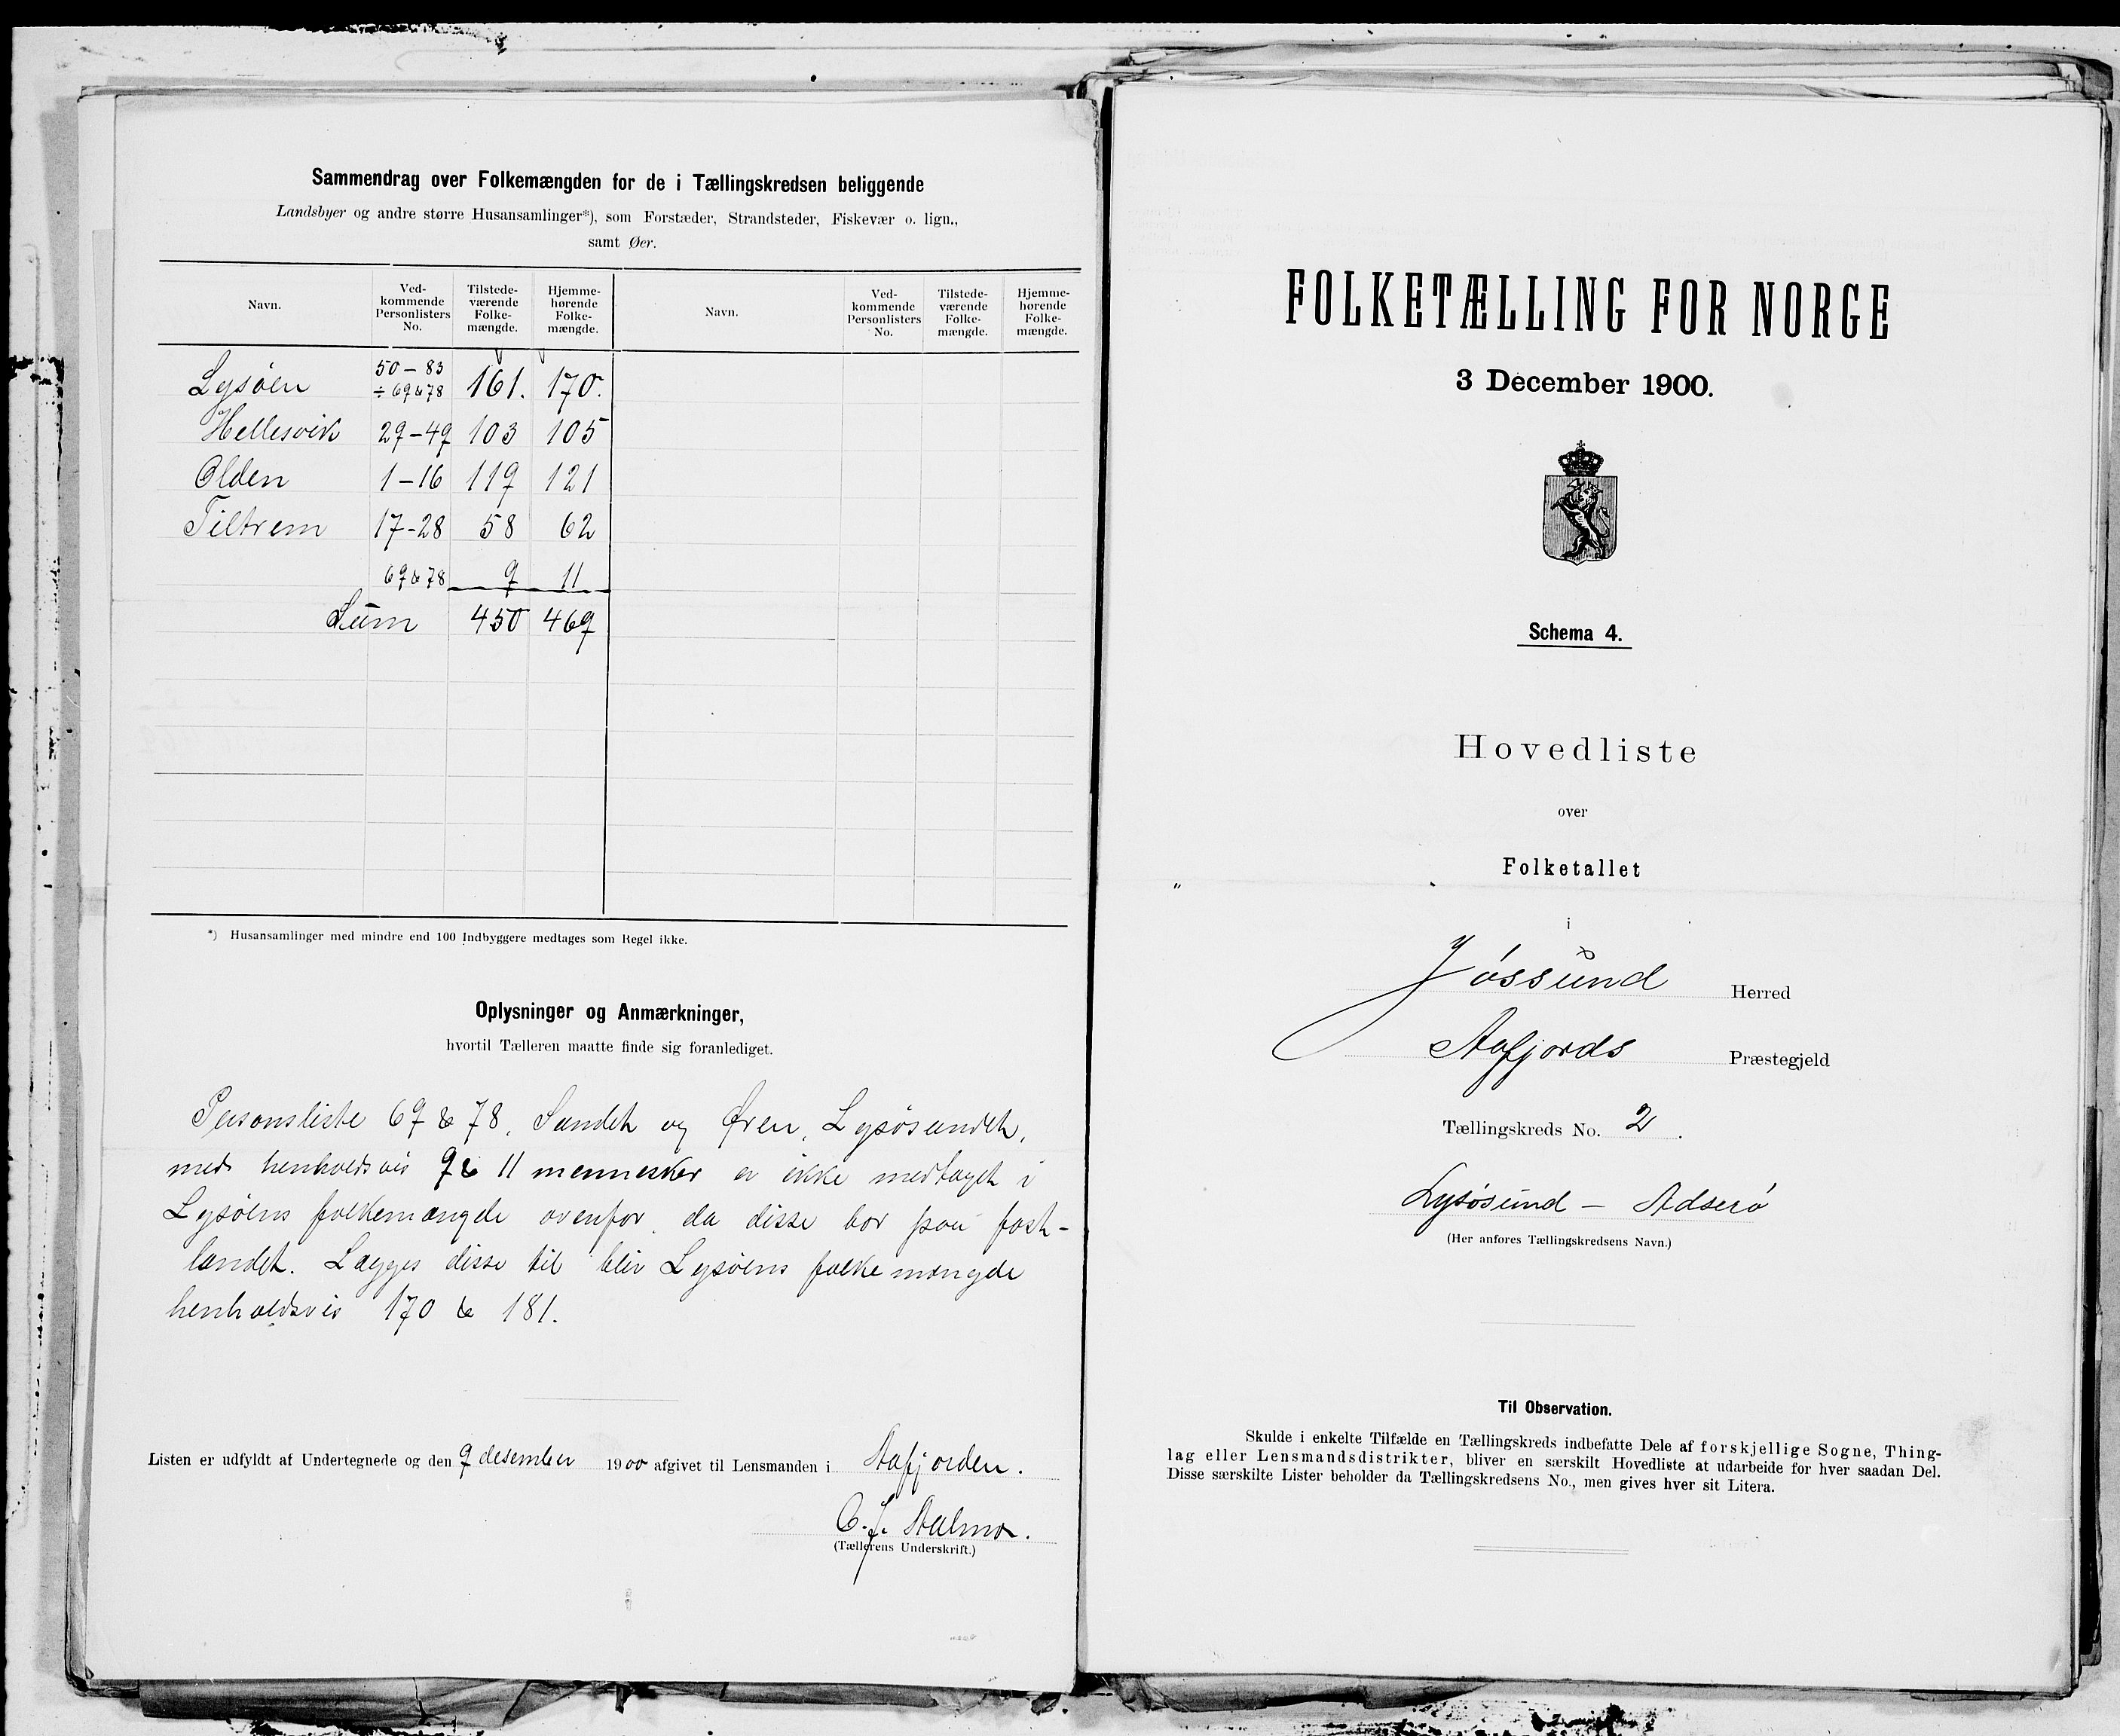 Sammendrag over Folkemængden for de i Tællingskredsen beliggende
Landsbyer og andre større Husansamlinger*), som Forstæder, Strandsteder, Fiskevær o. lign.,
samt Øer.
Navn. Ved-kommende Personlisters No. Tilstede-værende Folke-mængde. Hjemme-hørende Folke-mængde. Navn. Ved-kommende Personlisters No. Tilstede-værende Folke-mængde. Hjemme-hørende Folke-mængde.
Lysøen 50-83 ÷ 69&78 161. 170.
Hellesvik 29-49 103 105
Olden 1-16 119 121
Tiltrem 17-28 58 62
69&78 9 11
Sum 450 469
*) Husansamlinger med mindre end 100 Indbyggere medtages som Regel ikke.
Oplysninger og Anmærkninger,
hvortil Tælleren maatte finde sig foranlediget.
Personsliste 69 & 78, Sundet og Øren, Lysøsundet,
med henholdsvis 9 & 11 mennesker er ikke medtaget i
Lysøens folkemængde ovenfor, da disse bor paa fast-
landet. Lægges disse til blir Lysøens folkemængde
henholdsvis 170 & 181.
Listen er udfyldt af Undertegnede og den 9 desember 1900 afgivet til Lensmanden i Aafjorden.
(Tællerens Underskrift.)
FOLKETÆLLING FOR NORGE
3 December 1900.
Schema 4.
Hovedliste
over
Folketallet
i
Jøssund Herred
Aafjords Præstegjeld
Tællingskreds No. 2.
Lysøsund - Adserø
(Her anføres Tællingskredsens Navn.)
Til Observation.
Skulde i enkelte Tilfælde en Tællingskreds indbefatte Dele af forskjellige Sogne, Thing-
lag eller Lensmandsdistrikter, bliver en særskilt Hovedliste at udarbeide for hver saadan Del.
Disse særskilte Lister beholder da Tællingskredsens No., men gives hver sit Litera.